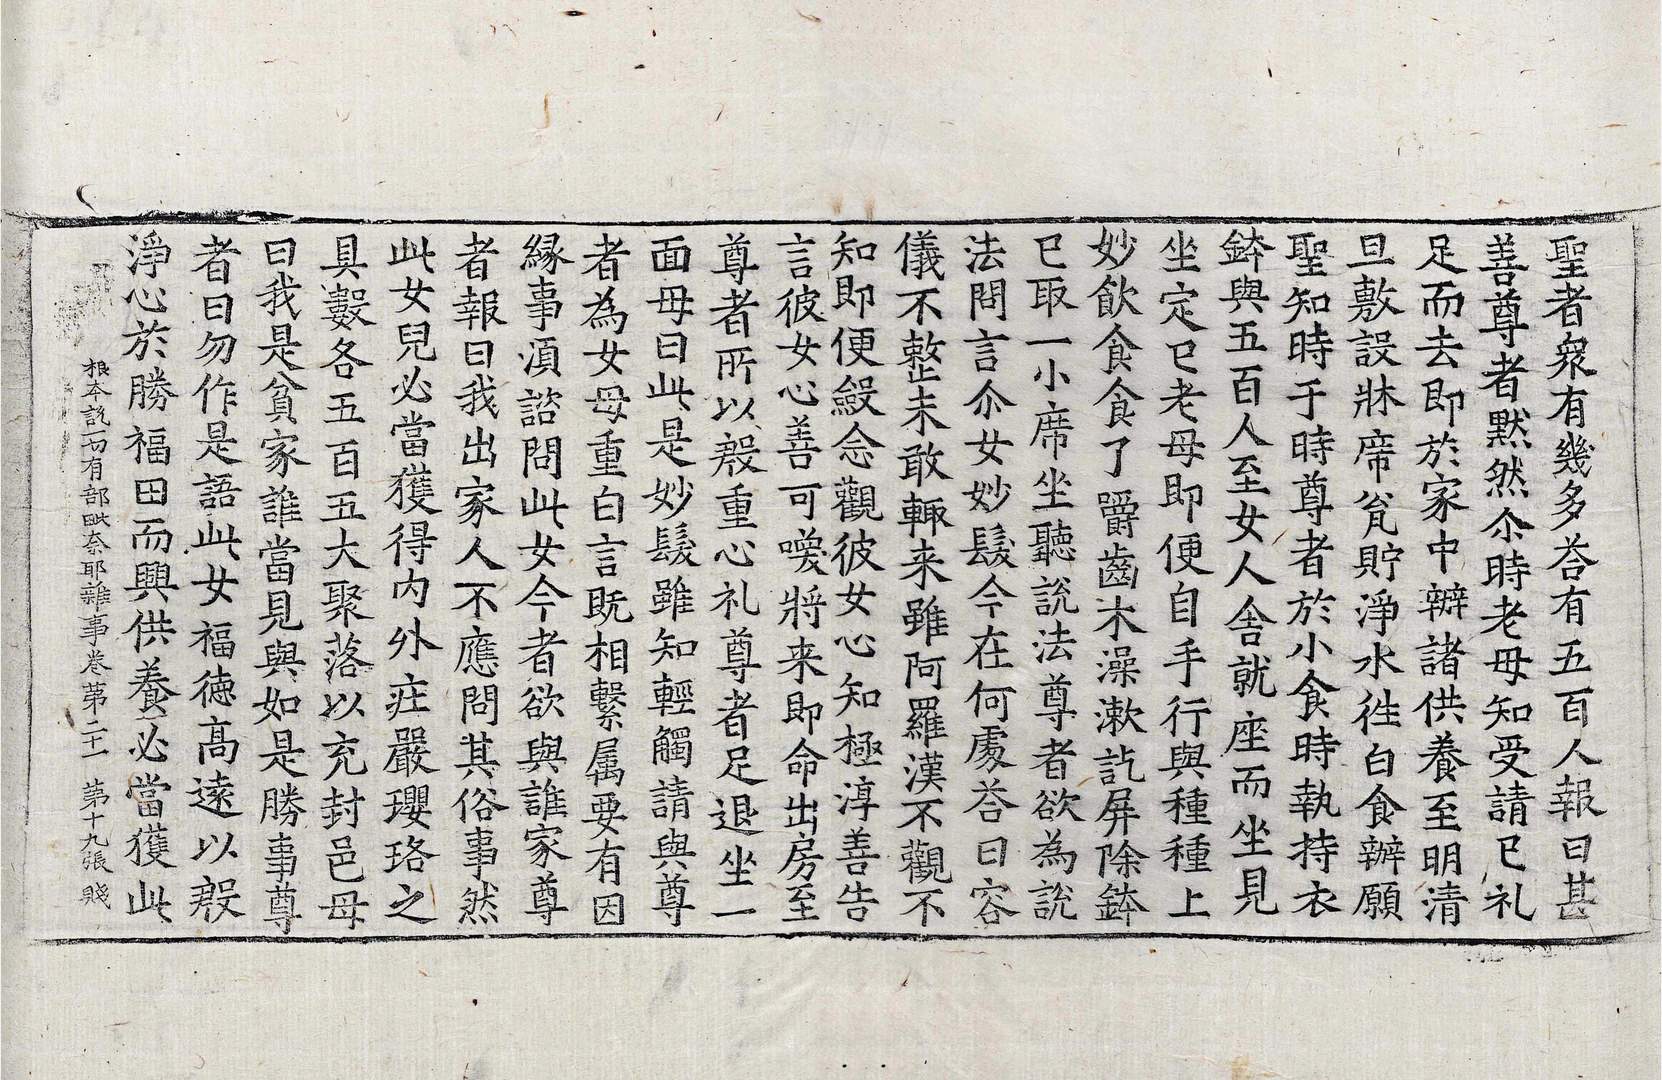 聖者衆有幾多荅有五百人報曰甚
善尊者默然尒時老母知受請已礼
足而去即於家中辦諸供養至明清
旦敷設牀席瓮貯淨水徃白食辦願
聖知時于時尊者於小食時執持衣
鉢與五百人至女人舎就座而坐見
坐定已老母即便自手行與種種上
妙飲食食了嚼齒木澡漱訖屏除鉢
已取一小席坐聽說法尊者欲為說
法問言尒女妙髮今在何處荅曰容
儀不整未敢輙来雖阿羅漢不觀不
知即便斂念觀彼女心知極淳善告
言彼女心善可喚將来即命出房至
尊者所以殷重心礼尊者足退坐一
面母曰此是妙髮雖知輕觸請與尊
者為女母重白言既相繫属要有因
縁事湏諮問此女今者欲與誰家尊
者報曰我出家人不應問其俗事然
此女兒必當獲得内外庄嚴瓔珞之
具數各五百五大聚落以充封邑母
曰我是貧家誰當見與如是勝事尊
者曰勿作是語此女福徳髙遠以殷
淨心於勝福田而興供養必當獲此
根本說一切有部毗奈耶雜事卷第二十一 第十九張 賤